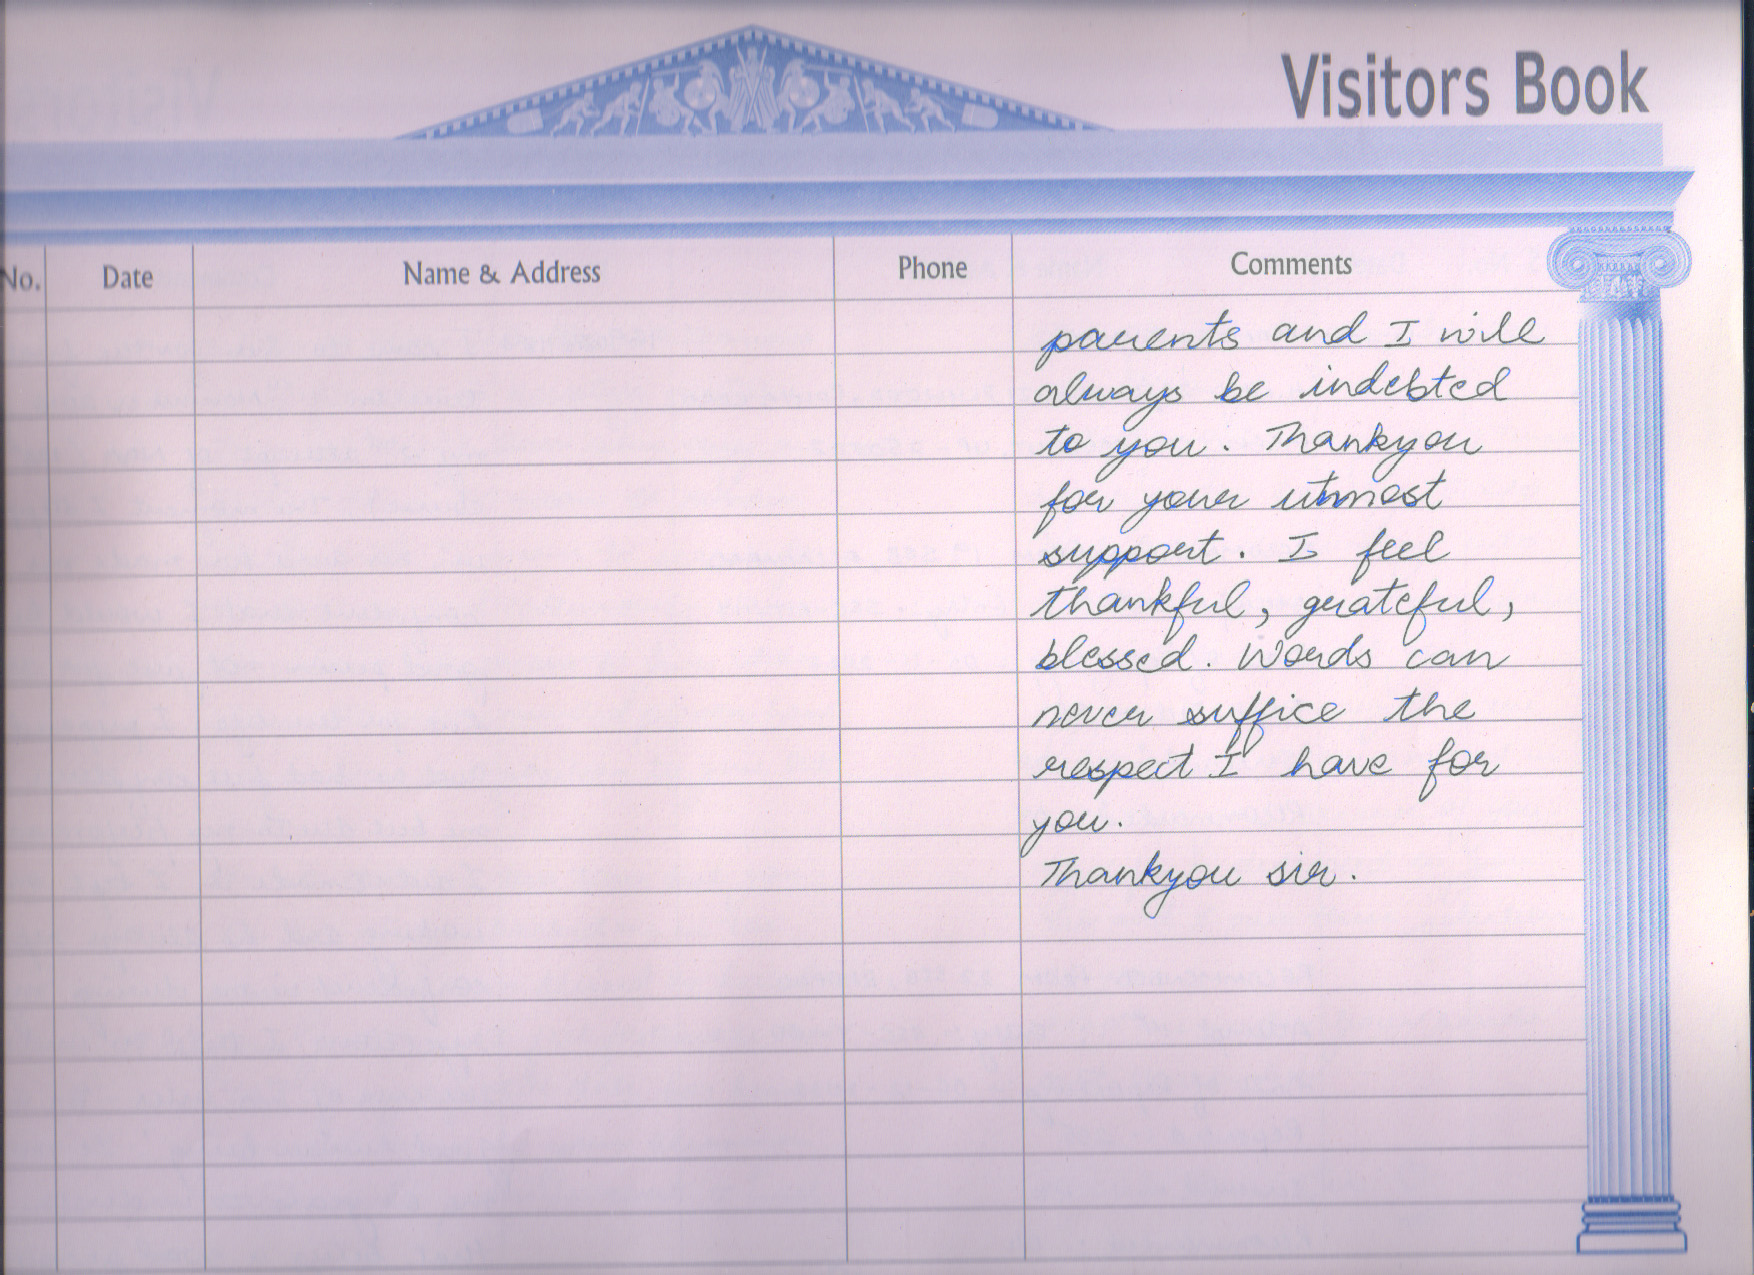 Visitors Book
No. Date Name & Address Phone Comments
parents and I will
always be indebted
to you. Thankyou
for your utmost
support. I feel
thankful, grateful,
blessed. Words can
never suffice the
respect I have for
you.
Thankyou sir.